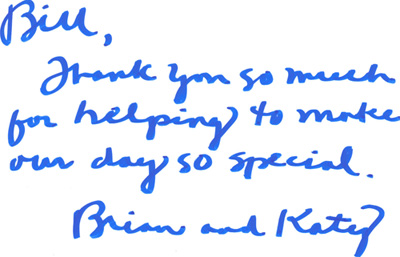 Bill,
Thank you so much
for helping to make
our day so special.
Brian and Katy